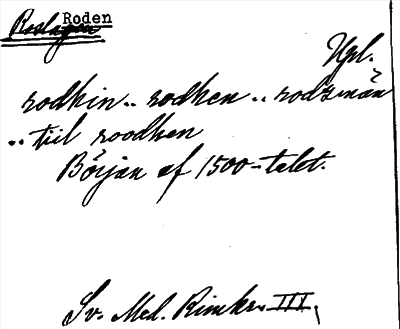 Roslagen Roden
Upl.
rodhin.. rodhen.. rodzmän
.. tiil roodhen
Början af 1500-talet.
Sv. Med. Rimkr. III,